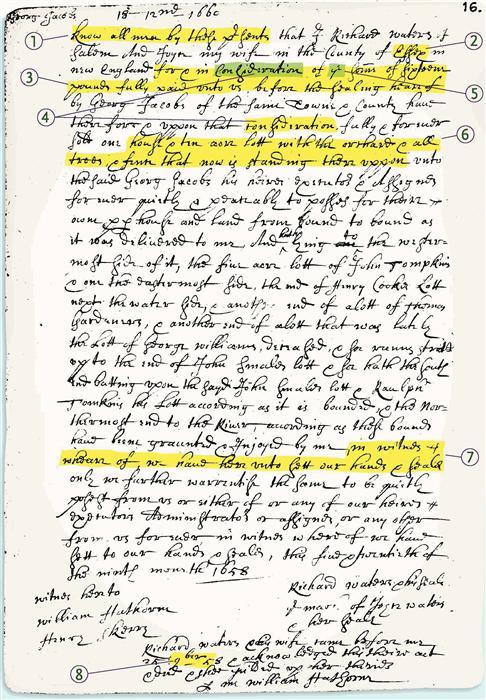 16.
Georg Jacobs 18 - 12 nd 1660
① Know all men by these psents that I Richard waters of
② Salem And Joyce my wife in the County of Essex in
③ new England for & in Consideration of ye somme of sixteen
pounds fully paid unto us before the sealing heareof
④ ⑤ by Georg Jacobs of the same Towne & County have
therfore & uppon that consideration fully & forever
⑥ sold our house & ten acre lott with the orchard & all
trees & fruite that now is standing ther uppon unto
the said Georg Jacobs his heires executors & Assignes
for ever quietly & peaceably to posses for theire
owne pp house and land from bound to bound as
it was delivered to me And lying to the wester
most side of it, the five acre lott of John Tompkins
& one the eastermost side, the end of Henry Cookes Lott
next the water side, & another end of a lott of Thomas
Gardeners, & another end of a lott that was lately
the Lott of George williams, deceased, & soe runns
up to the end of John Smales lott & soe hath the south
end butting upon the sayd John Smales lott & Raulph
Tomkins his Lott according as it is bounded & the Nor
thermost end to the River, acording as these bounds
have bene graunted & injoyed by me, in witnes
⑦ wheare of, we have here unto sett our hands & seals
only we further warrentise the same to be quietly
possest from us or either of or any of our heires
executors Administrators or assignes or any other
from us for ever in witnes whereof we have
sett to our hands & seales, this five & twentith of
the ninth month 1658
witnes hereto
William Hathorne
Henry Skerry
Richard waters & his seale
ye marc of Joyce waters
& her seale
Richard waters & his wife came before me
⑧ 25 9ber 58 & acknowledged this theire act
& deed & shee yeilded up her thirdes
p me William Hathorne